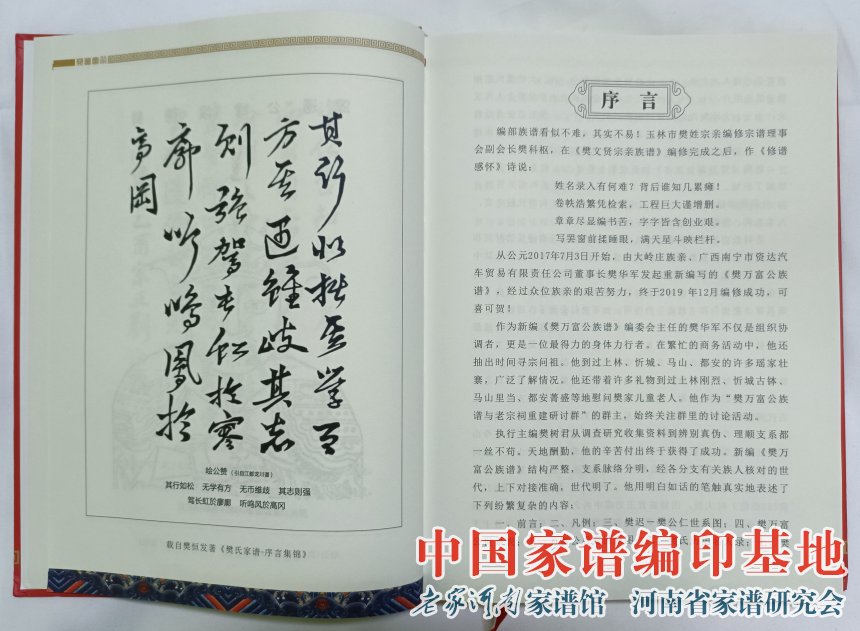 其行如松 无学有方 无币维歧 其志则强
驾长虹於廖廊 听鸣风於高冈
载自樊恒发著《樊氏家谱-序言集锦》
序言
编部族谱看似不难，其实不易！玉林市樊姓宗亲编修宗谱理事
会副会长樊科枢，在《樊文贤宗亲族谱》编修完成之后，作《修谱
感怀》诗说：
姓名录入有何难？背后谁知几累瘫！
卷帙浩繁凭检索，工程巨大谨增删。
章章尽显编书苦，字字皆含创业艰。
写罢窗前揉睡眼，满天星斗映栏杆。
从公元2017年7月3日开始，由大岭庄族亲、广西南宁市贤达
汽车贸易有限责任公司董事长樊华军发起重新编写的《樊万富公族
谱》，经过众位族亲的艰苦努力，终于2019 年12月编修成功，可
喜可贺！
作为新编《樊万富公族谱》编委会主任的樊华军不仅是组织协
调者，更是一位最得力的身体力行者。在繁忙的商务活动中，他还
抽出时间寻宗问祖。他到过上林、忻城、马山、都安的许多瑶家壮
寨，广泛了解情况。他还带着许多礼物到过上林刚烈、忻城古钵、
马山里当、都安菁盛等地慰问樊家儿童老人。他作为“樊万富公族
谱与老宗祠重建研讨群”的群主，始终关注群里的讨论活动。
执行主编樊树君从调查研究收集资料到辨别真伪、理顺支系都
一丝不苟。天地酬勤，他的辛苦付出终于获得了成功。新编《樊万
富公族谱》结构严整，支系脉络分明，经各分支有关族人核对的世
代，上下对接准确，世代明了。他用明白如话的笔触真实地表述了
下列纷繁复杂的内容：
一、前言；二、凡例；三、樊迟－樊公仁世系图；四、樊万富
中国家谱编印基地
老家河南家谱馆 河南省家谱研究会